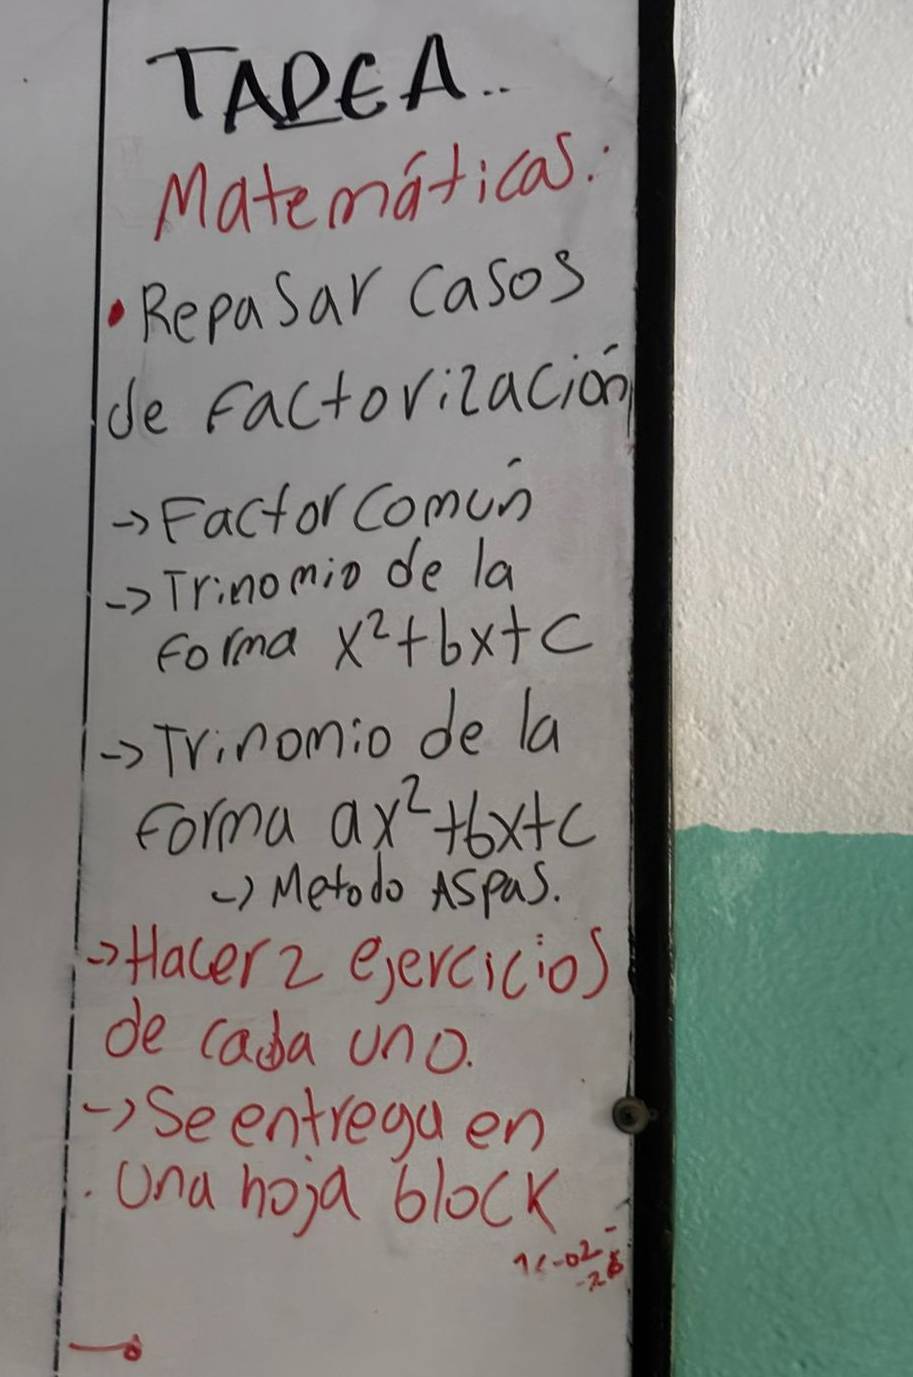 TAREA..
Matemáticas:
• Repasar casos
de Factorización
→ Factor Común
→ Trinomio de la
Forma x²+bx+c
→ Trinomio de la
Forma ax²+bx+c
→ Metodo Aspas.
→ Hacer 2 ejercicios
de cada uno.
→ Se entrega en
una hoja block